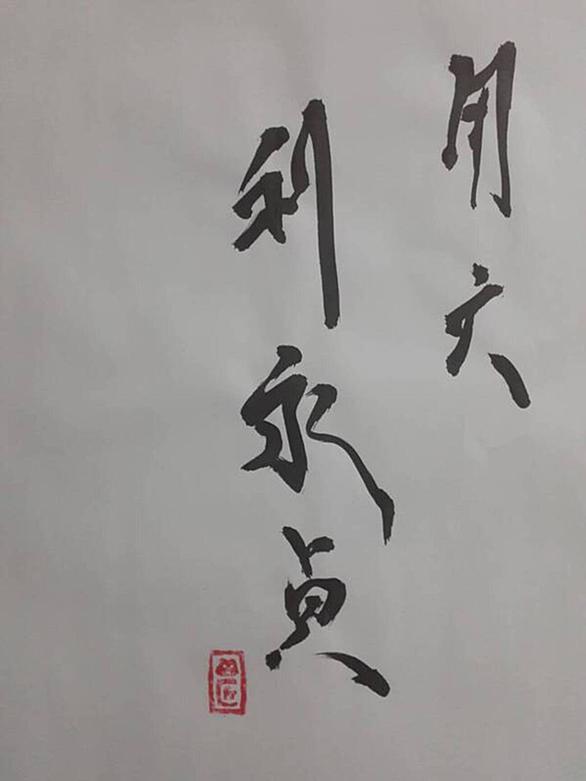 用六
利永贞